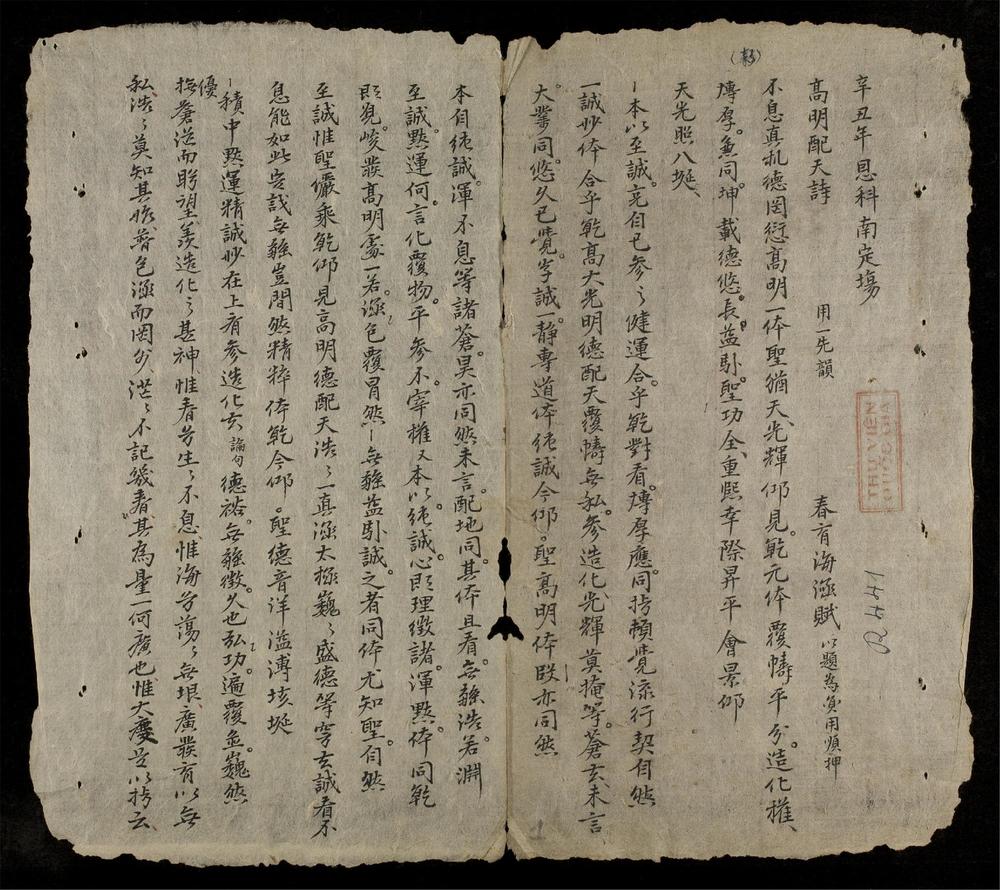 (彭)
辛丑年恩科南定場
高明配天詩 用一先韻 春有海涵賦 以題為負用順押
不息真机德罔衍高明一体聖猶天光輝仰見乾元体覆幬平分造化權
博厚兼同坤載德悠長益卧聖功全重熙幸際昇平會景仰
天光照八埏
一本以至誠充自己參之健運合乎乾對看博厚應同揹頓覺流行契自然
一誠妙体合乎乾高大光明德配天覆幬無私參造化光輝莫掩等蒼玄未言
大業同悠久已覺字誠一静專道体純誠今仰聖高明体段亦同然
本自純誠渾不息等諸蒼昊亦同然未言配地同其体且看無雖浩若淵
至誠黙運何言化覆物平參不宰權又本以純誠心即理徵諸渾黙体同乾
即覓峻發高明處一若涵色覆冒然一無雖益卧誠之者同体尤知聖自然
至誠惟聖儼乘乾仰見高明德配天浩々一真涵太極巍々盛德等穹玄誠看不
息能如此豈戔無雖豈間然精粹体乾今仰聖德音洋溢溥垓埏
一積中黙運精誠妙在上有參造化玄論句德裕無雖徵久也弘功遍覆並巍然
優撫蒼涯而眺望羨造化之甚神惟春芳生々不息惟海芳蕩々無垠廣發有以無
私浩々莫知其㤗眷色涵而罔外漭々不記幾春其為量一何廣也惟大慶是以揹云
R.4441
THƯ VIỆN
1